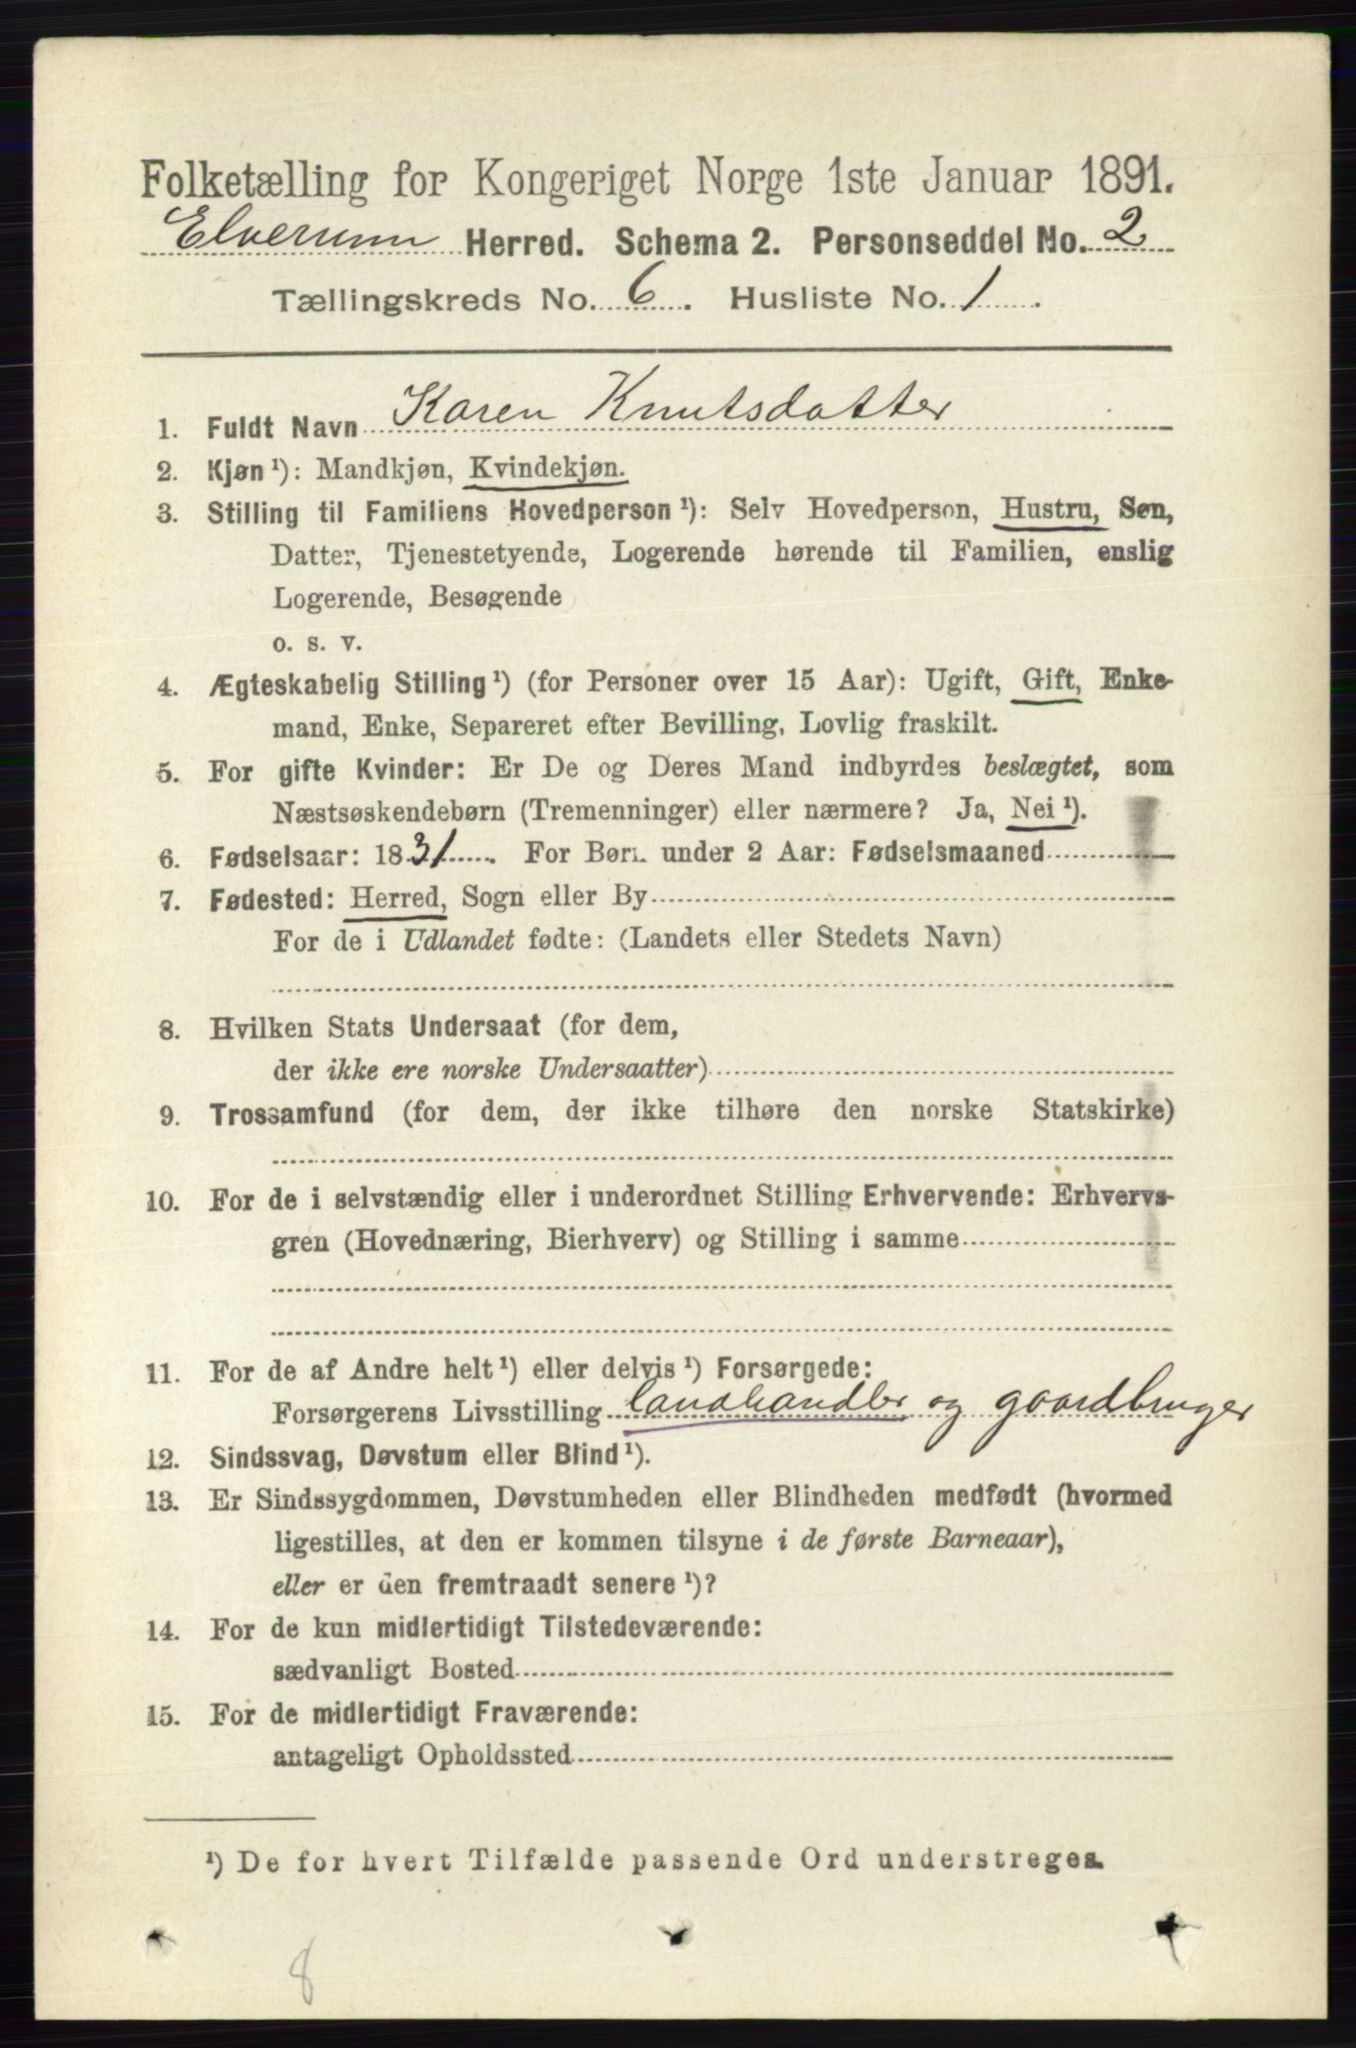 Folketælling for Kongeriget Norge 1ste Januar 1891.
Elverum Herred. Schema 2. Personseddel No. 2
Tællingskreds No. 6. Husliste No. 1.
1. Fuldt Navn Karen Knutsdatter
2. Kjøn ¹): Mandkjøn, Kvindekjøn.
3. Stilling til Familiens Hovedperson ¹): Selv Hovedperson, Hustru, Søn,
Datter, Tjenestetyende, Logerende hørende til Familien, enslig
Logerende, Besøgende
o. s. v.
4. Ægteskabelig Stilling ¹) (for Personer over 15 Aar): Ugift, Gift, Enke-
mand, Enke, Separeret efter Bevilling, Lovlig fraskilt.
5. For gifte Kvinder: Er De og Deres Mand indbyrdes beslægtet, som
Næstsøskendebørn (Tremenninger) eller nærmere? Ja, Nei ¹).
6. Fødselsaar: 1831. For Børn under 2 Aar: Fødselsmaaned
7. Fødested: Herred, Sogn eller By
For de i Udlandet fødte: (Landets eller Stedets Navn)
8. Hvilken Stats Undersaat (for dem,
der ikke ere norske Undersaatter)
9. Trossamfund (for dem, der ikke tilhøre den norske Statskirke)
10. For de i selvstændig eller i underordnet Stilling Erhvervende: Erhvervs-
gren (Hovednæring, Bierhverv) og Stilling i samme
11. For de af Andre helt ¹) eller delvis ¹) Forsørgede:
Forsørgerens Livsstilling landhandler og gaardbruger
12. Sindssvag, Døvstum eller Blind ¹).
13. Er Sindssygdommen, Døvstumheden eller Blindheden medfødt (hvormed
ligestilles, at den er kommen tilsyne i de første Barneaar),
eller er den fremtraadt senere ¹)?
14. For de kun midlertidigt Tilstedeværende:
sædvanligt Bosted
15. For de midlertidigt Fraværende:
antageligt Opholdssted
¹) De for hvert Tilfælde passende Ord understreges.
8